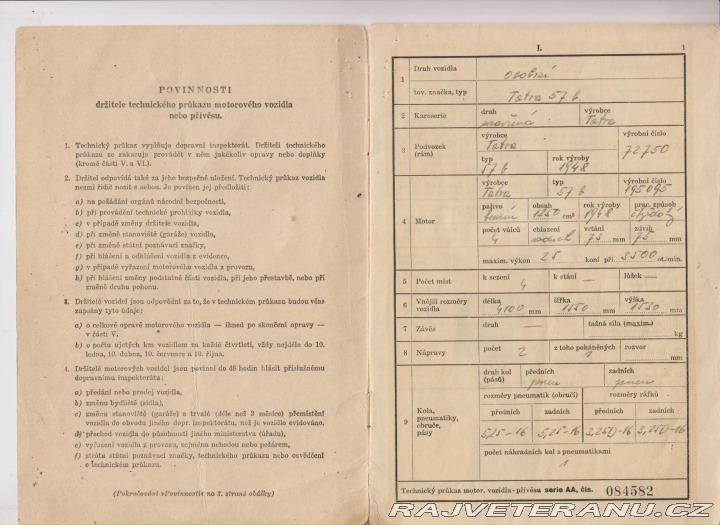 POVINNOSTI
držitele technického průkazu motorového vozidla
nebo přívěsu.
1. Technický průkaz vyplňuje dopravní inspektorát. Držiteli technického
průkazu se zakazuje provádět v něm jakékoliv opravy nebo doplňky
(kromě části V. a VI.).
2. Držitel odpovídá také za jeho bezpečné uložení. Technický průkaz vozidla
nesmí řidič nosit s sebou. Je povinen jej předložiti:
a) na požádání orgánů národní bezpečnosti,
b) při provádění technické prohlídky vozidla,
c) v případě změny držitele vozidla,
d) při změně stanoviště (garáže) vozidla,
e) při změně státní poznávací značky,
f) při hlášení a odhlášení vozidla z evidence,
g) v případě vyřazení motorového vozidla z provozu,
h) při hlášení změny podstatné části vozidla, při jeho přestavbě, nebo při
změně druhu pohonu.
3. Držitelé vozidel jsou odpovědni za to, že v technickém průkazu budou včas
zapsány tyto údaje:
a) o celkové opravě motorového vozidla — ihned po skončení opravy —
v části V.
b) o počtu ujetých km vozidlem za každé čtvrtletí, vždy nejdéle do 10.
ledna, 10. dubna, 10. července a 10. října.
4. Držitelé motorových vozidel jsou povinni do 48 hodin hlásit příslušnému
dopravnímu inspektorátu:
a) předání nebo prodej vozidla,
b) změnu bydliště (sídla),
c) změnu stanoviště (garáže) a trvalé (déle než 3 měsíce) přemístění
vozidla do obvodu jiného dopr. inspektorátu, než je vozidlo evidováno,
d) přechod vozidla do působnosti jiného ministerstva (úřadu),
e) vyřazení vozidla z provozu, zejména nehodou nebo požárem,
f) ztrátu státní poznávací značky, technického průkazu nebo osvědčení
o technickém průkazu.
(Pokračování »Povinností« na 3. straně obálky)
I. 1
1 Druh vozidla osobní
tov. značka, typ Tatra 57 b
2 Karoserie druh výrobce Tatra
3 Podvozek (rám) výrobce Tatra výrobní číslo 72750
typ 57 b rok výroby 1948
4 Motor výrobce Tatra typ 57 b výrobní číslo 195095
palivo benzin obsah 1250 cm³ rok výroby 1948 prac. způsob čtyřdobý
počet válců 4 chlazení vzduch vrtání 75 mm zdvih 75 mm
maxim. výkon 25 koní při 3500 ot./min.
5 Počet míst k sezení 4 k stání — lůžek —
6 Vnější rozměry vozidla délka 4100 mm šířka 1550 mm výška 1530 mm
7 Závěs druh — tažná síla (maxim.) kg
8 Nápravy počet 2 z toho poháněných 1 rozvor mm
9 Kola, pneumatiky, obruče, pásy
druh kol (pásů) předních pneu zadních pneu
rozměry pneumatik (obručí) rozměry ráfků
předních zadních předních zadních
5,25-16 5,25-16 3,25D-16 3,25D-16
počet náhradních kol s pneumatikami
1
Technický průkaz motor. vozidla-přívěsu serie AA, čís. 084582
RAJVETERANU.CZ